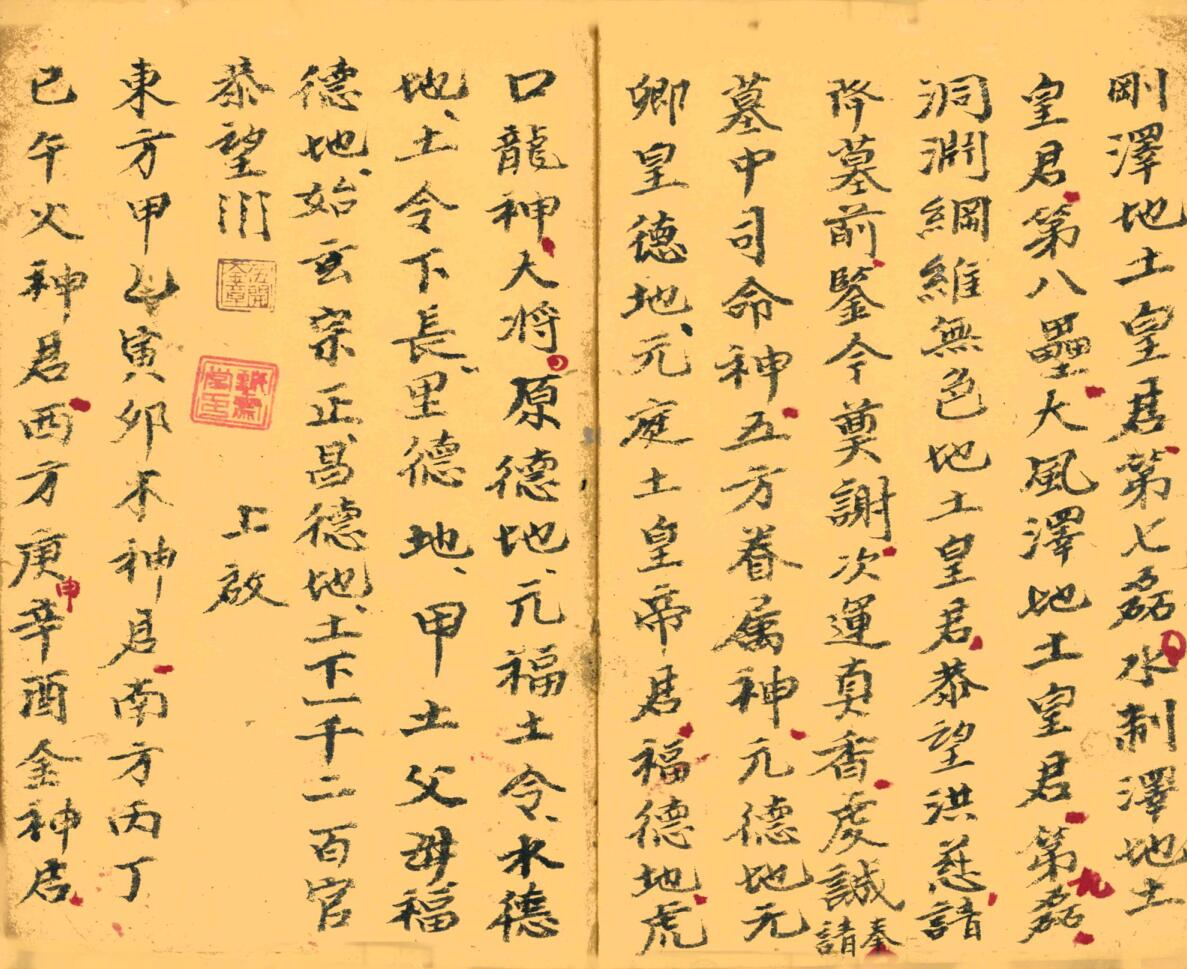 剛澤地土皇君第七磊水制澤地土
皇君第八壘大風澤地土皇君第九磊
洞淵綱維無色地土皇君恭望洪慈請
降墓前鑒今奠謝次運真香虔誠奉請
墓中司命神五方眷属神元德地元
卿皇德地元庭土皇帝君福德地虎
口龍神大将原德地元福土令水德
地土令下長里德地甲土父母福
德地始玄宗正昌德地土下一千二百官
恭望
上啟
東方甲乙寅卯木神君南方丙丁
巳午火神君西方庚申辛酉金神君